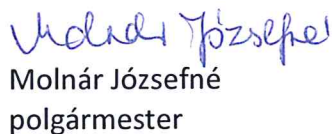 Molnár Józsefné
Molnár Józsefné
polgármester